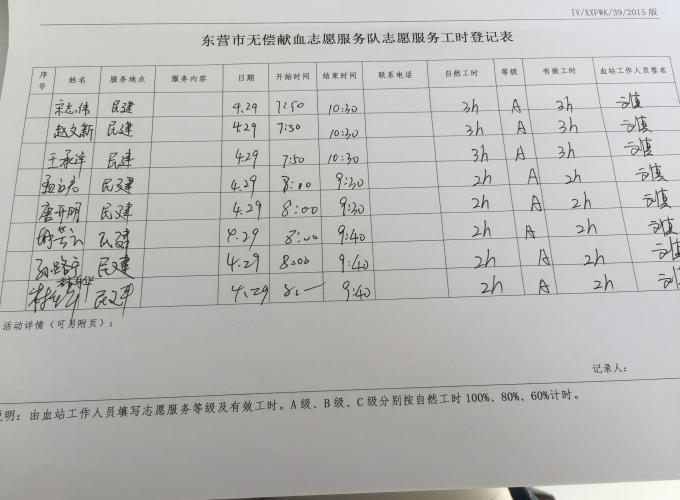 IV/XXFWK/39/2015 版
东营市无偿献血志愿服务队志愿服务工时登记表
序号 姓名 服务地点 服务内容 日期 开始时间 结束时间 联系电话 自然工时 等级 有效工时 血站工作人员签名
宋志伟 民建 4.29 7:50 10:30 3h A 3h
赵文新 民建 4.29 7:50 10:30 3h A 3h
于承洋 民建 4.29 7:50 10:30 3h A 3h
民建 4.29 8:00 9:30 2h A 2h
唐开明 民建 4.29 8:00 9:30 2h A 2h
民建 4.29 8:00 9:40 2h A 2h
孙路宁 民建 4.29 8:00 9:40 2h A 2h
4.29 9:40 2h A 2h
活动详情（可另附页）：
记录人：
说明：由血站工作人员填写志愿服务等级及有效工时。A 级、B 级、C 级分别按自然工时 100%、80%、60%计时。